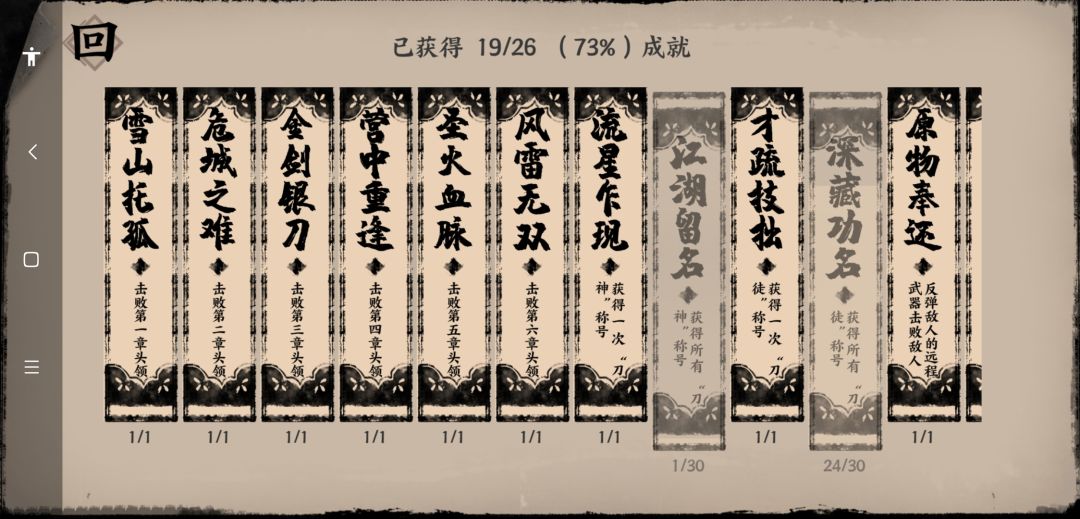 回
已获得 19/26 （73%）成就
雪山托孤
击败第一章头领
1/1
危城之难
击败第二章头领
1/1
金剑银刀
击败第三章头领
1/1
营中重逢
击败第四章头领
1/1
圣火血脉
击败第五章头领
1/1
风雷无双
击败第六章头领
1/1
流星乍现
获得一次“刀
神”称号
1/1
江湖留名
获得所有“刀
神”称号
1/30
才疏技拙
获得一次“刀
徒”称号
1/1
深藏功名
获得所有“刀
徒”称号
24/30
原物奉还
反弹敌人的远程
武器击败敌人
1/1